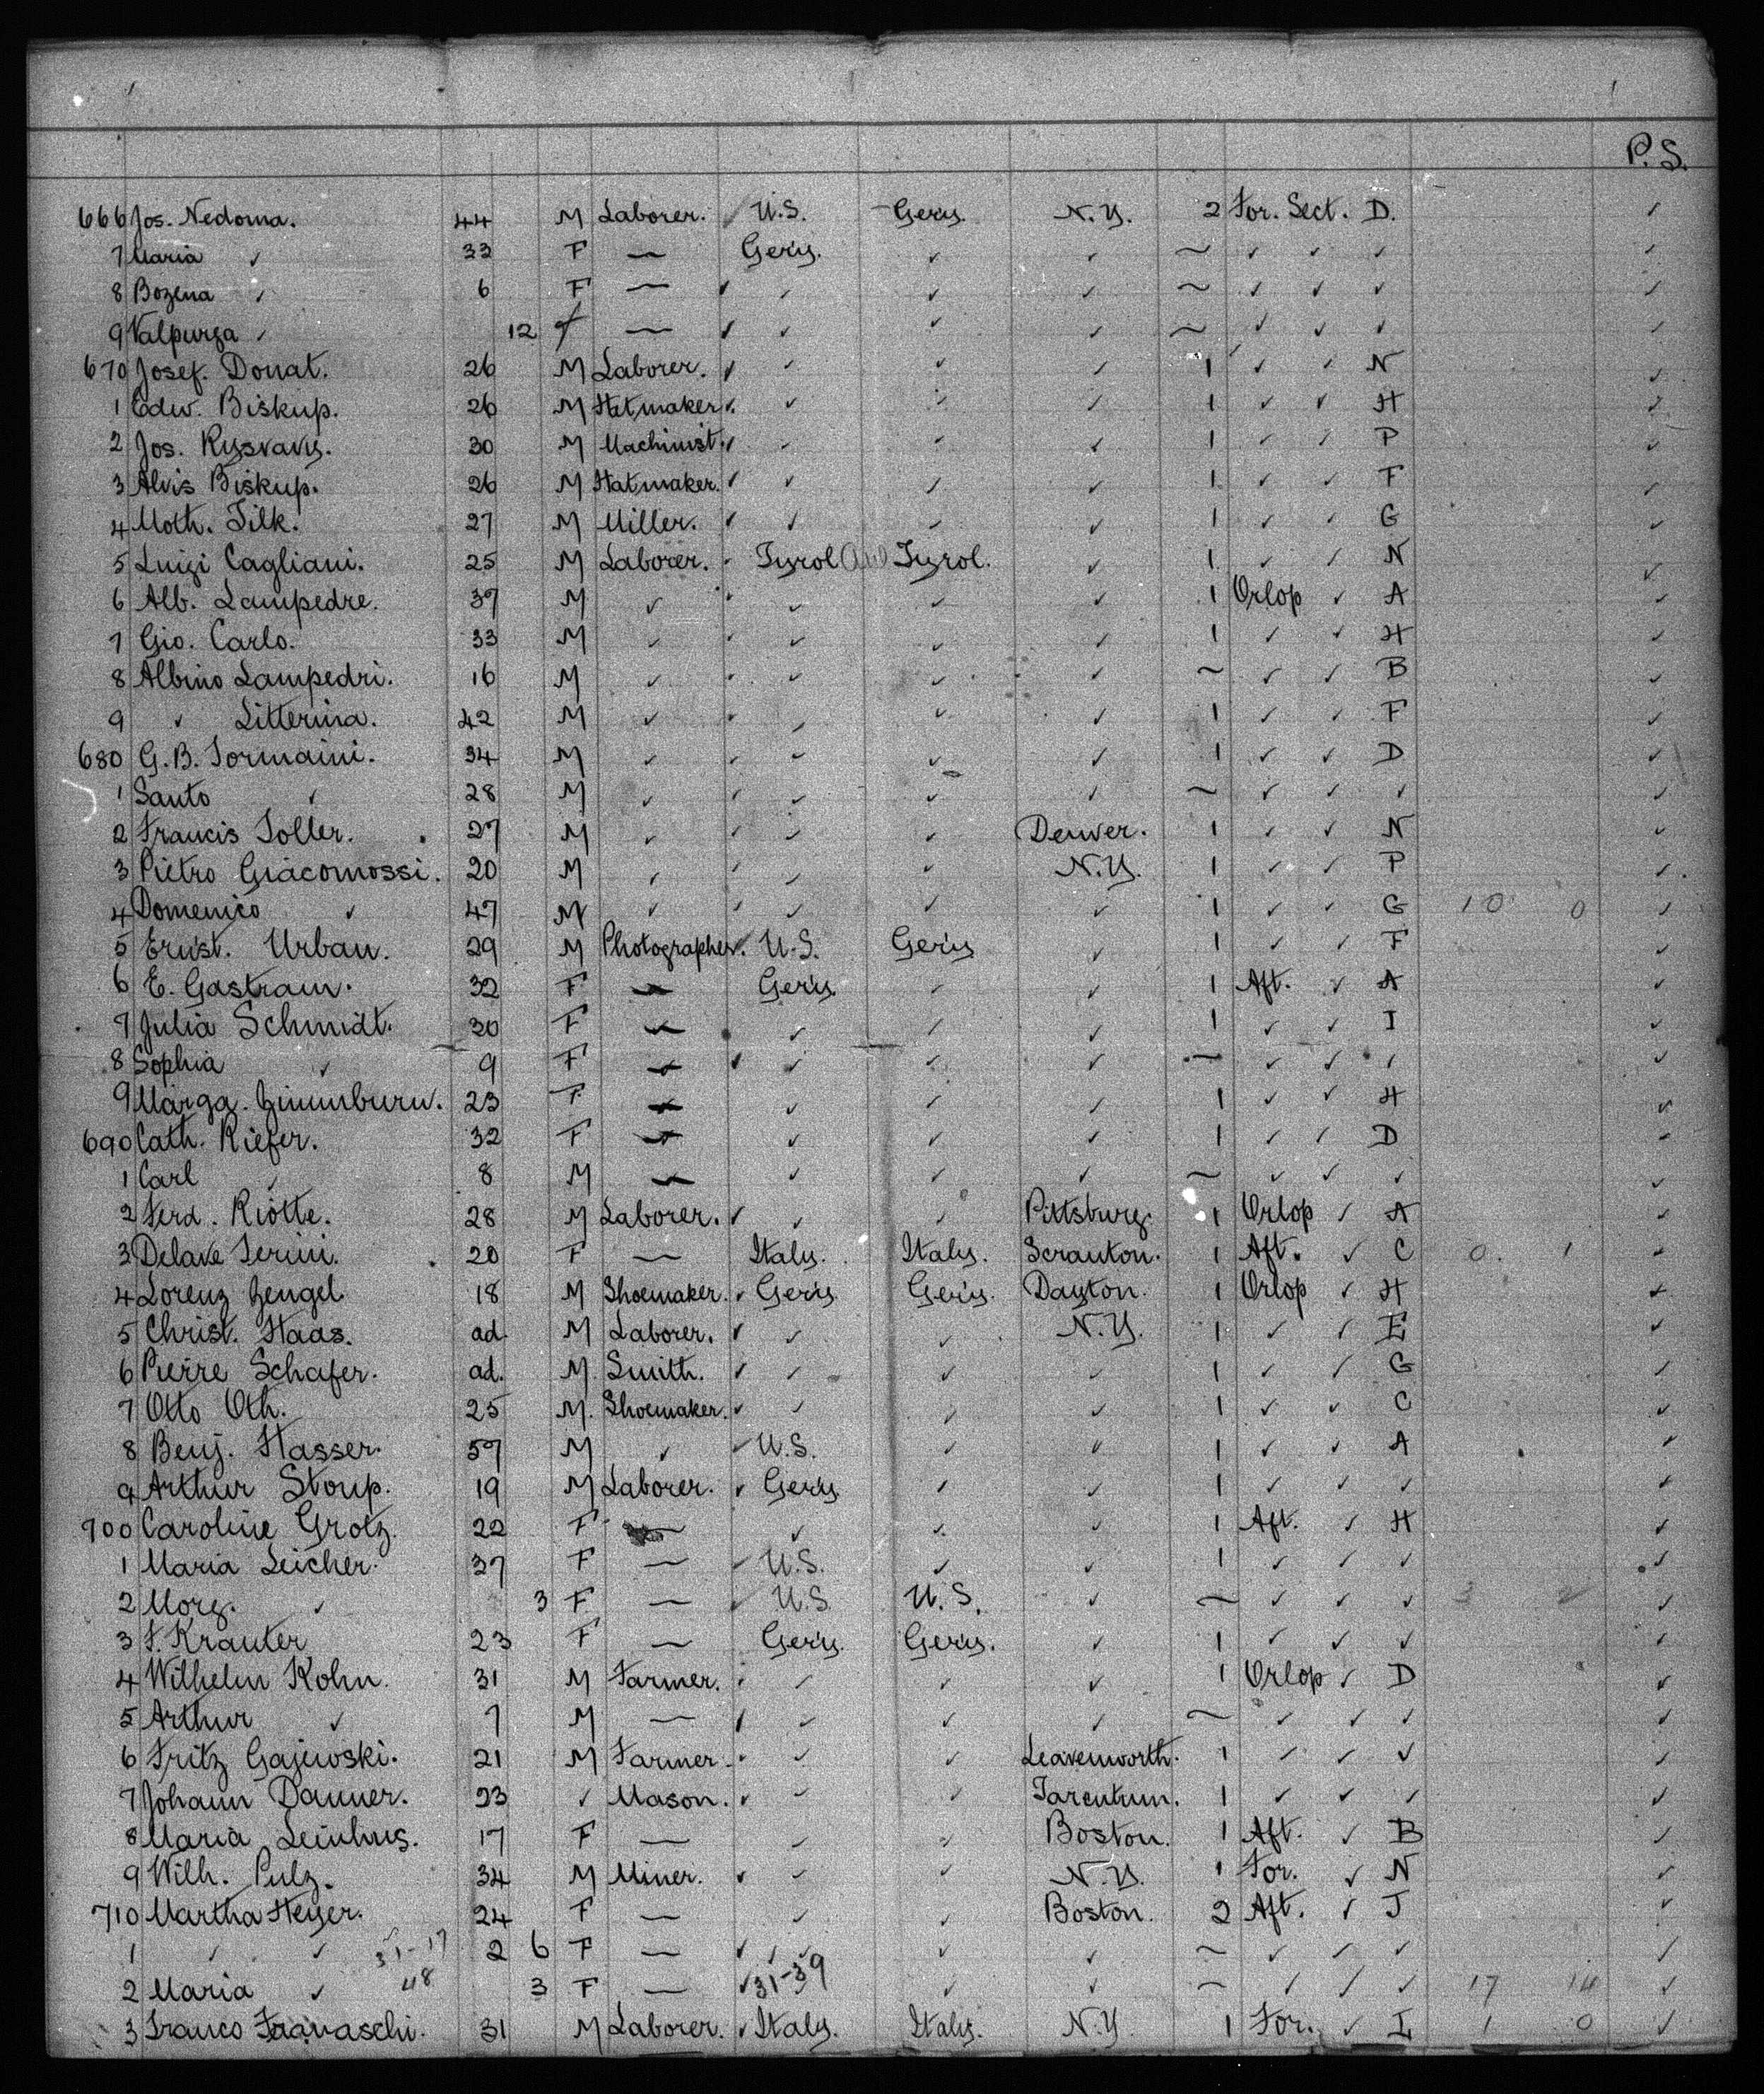 P.S.
666 Jos. Nedoma. 44 M Laborer. ✓ U.S. Gery. N.Y. 2 For. Sect. D. ✓
7 Maria ✓ 33 F — Gery. ✓ ✓ ~ ✓ ✓ ✓ ✓
8 Bozena ✓ 6 F — ✓ ✓ ✓ ✓ ~ ✓ ✓ ✓ ✓
9 Valpurga ✓ 12 f — ✓ ✓ ✓ ✓ ~ ✓ ✓ ✓ ✓
670 Josef. Donat. 26 M Laborer. ✓ ✓ ✓ ✓ 1 ✓ ✓ N ✓
1 Edw. Biskup. 26 M Hatmaker. ✓ ✓ ✓ ✓ 1 ✓ ✓ H ✓
2 Jos. Rysvavy. 30 M Machinist. ✓ ✓ ✓ ✓ 1 ✓ ✓ P ✓
3 Alvis Biskup. 26 M Hatmaker. ✓ ✓ ✓ ✓ 1 ✓ ✓ F ✓
4 Moth. Filk. 27 M Miller. ✓ ✓ ✓ ✓ 1 ✓ ✓ G ✓
5 Luigi Cagliani. 25 M Laborer. ✓ Tyrol Tyrol. ✓ 1 ✓ ✓ N ✓
6 Alb. Lampedre. 37 M ✓ ✓ ✓ ✓ ✓ 1 Orlop ✓ A ✓
7 Gio. Carlo. 33 M ✓ ✓ ✓ ✓ ✓ 1 ✓ ✓ H ✓
8 Albino Lampedri. 16 M ✓ ✓ ✓ ✓ ✓ ~ ✓ ✓ B ✓
9 ✓ Litterina. 42 M ✓ ✓ ✓ ✓ ✓ 1 ✓ ✓ F ✓
680 G.B. Tormaini. 34 M ✓ ✓ ✓ ✓ ✓ 1 ✓ ✓ D ✓
1 Santo ✓ 28 M ✓ ✓ ✓ ✓ ✓ ~ ✓ ✓ ✓ ✓
2 Francis Toller. 27 M ✓ ✓ ✓ ✓ Denver. 1 ✓ ✓ N ✓
3 Pietro Giacomossi. 20 M ✓ ✓ ✓ ✓ N.Y. 1 ✓ ✓ P ✓
4 Domenico ✓ 47 M ✓ ✓ ✓ ✓ ✓ 1 ✓ ✓ G 10 0 ✓
5 Ernst. Urban. 29 M Photographer. ✓ U.S. Gery ✓ 1 ✓ ✓ F ✓
6 E. Gastram. 32 F — Gery. ✓ ✓ 1 Aft. ✓ A ✓
7 Julia Schmidt. 30 F — ✓ ✓ ✓ 1 ✓ ✓ I ✓
8 Sophia ✓ 9 F — ✓ ✓ ✓ ✓ ~ ✓ ✓ ✓ ✓
9 Marga. Zimmburn. 23 F — ✓ ✓ ✓ 1 ✓ ✓ H ✓
690 Cath. Kiefer. 32 F — ✓ ✓ ✓ 1 ✓ ✓ D ✓
1 Carl ✓ 8 M — ✓ ✓ ✓ ~ ✓ ✓ ✓ ✓
2 Ferd. Riotte. 28 M Laborer. ✓ ✓ ✓ Pittsburg. 1 Orlop ✓ A ✓
3 Delave Serini. 20 F — Italy. Italy. Scranton. 1 Aft. ✓ C 0 1 ✓
4 Lorenz Zengel 18 M Shoemaker. ✓ Gery Gery. Dayton. 1 Orlop ✓ H ✓
5 Christ. Haas. ad. M Laborer. ✓ ✓ ✓ N.Y. 1 ✓ ✓ E ✓
6 Pierre Schafer. ad. M Smith. ✓ ✓ ✓ ✓ 1 ✓ ✓ G ✓
7 Otto Oth. 25 M. Shoemaker. ✓ ✓ ✓ ✓ 1 ✓ ✓ C ✓
8 Benj. Hasser. 57 M ✓ ✓ U.S. ✓ ✓ 1 ✓ ✓ A ✓
9 Arthur Stoup. 19 M Laborer. ✓ Gery ✓ ✓ 1 ✓ ✓ ✓ ✓
700 Caroline Grotz. 22 F — ✓ ✓ ✓ 1 Aft. ✓ H ✓
1 Maria Leicher. 37 F — ✓ U.S. ✓ ✓ 1 ✓ ✓ ✓ ✓
2 Morg. ✓ 3 F — ✓ U.S. U.S. ✓ ~ ✓ ✓ ✓ 3 2 ✓
3 F. Krauter 23 F — Gery. Gery. ✓ 1 ✓ ✓ ✓ ✓
4 Wilhelm Kohn. 31 M Farmer. ✓ ✓ ✓ ✓ 1 Orlop ✓ D ✓
5 Arthur ✓ 7 M — ✓ ✓ ✓ ✓ ~ ✓ ✓ ✓ ✓
6 Fritz Gajewski. 21 M Farmer. ✓ ✓ ✓ Leavenworth. 1 ✓ ✓ ✓ ✓
7 Johann Danner. 23 ✓ Mason. ✓ ✓ ✓ Tarentum. 1 ✓ ✓ ✓ ✓
8 Maria Leinhus. 17 F — ✓ ✓ Boston. 1 Aft. ✓ B ✓
9 Wilh. Pulz. 34 M Miner. ✓ ✓ ✓ N.Y. 1 For. ✓ N ✓
710 Martha Heyer. 24 F — ✓ ✓ Boston. 2 Aft. ✓ J ✓
1 ✓ ✓ 31-17 2 6 F — ✓ ✓ ✓ ✓ ~ ✓ ✓ ✓ ✓
2 Maria ✓ 48 3 F — ✓ 31-39 ✓ ✓ ~ ✓ ✓ ✓ 17 14 ✓
3 Franco 31 M Laborer. ✓ Italy. Italy. N.Y. 1 For. ✓ I 1 0 ✓